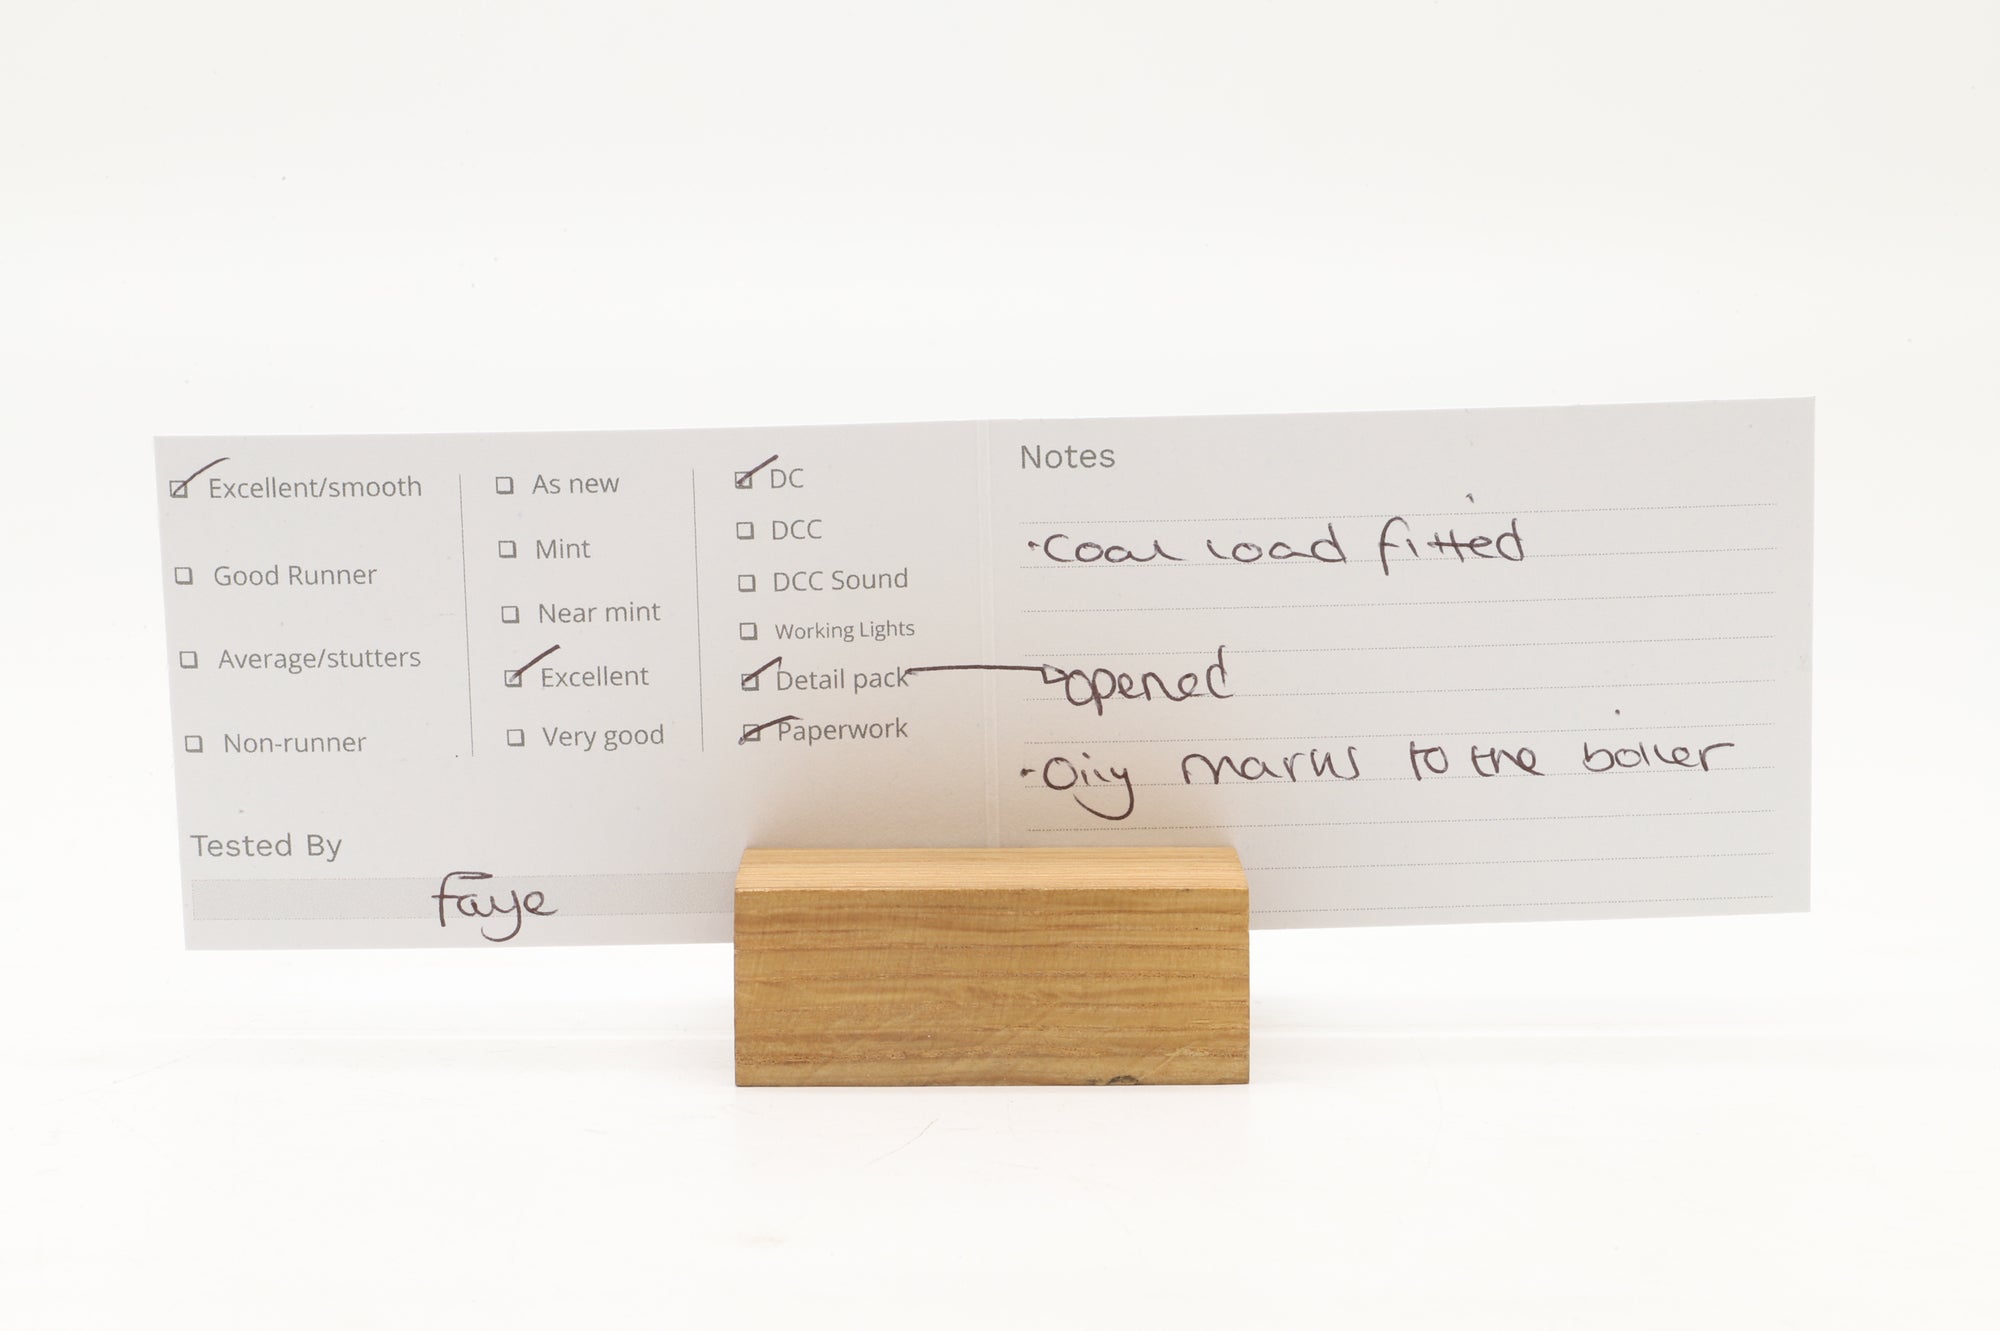 Excellent/smooth
Good Runner
Average/stutters
Non-runner
As new
Mint
Near mint
Excellent
Very good
DC
DCC
DCC Sound
Working Lights
Detail pack
Paperwork
Tested By
Faye
Notes
·Coal load fitted
opened
·Oily marks to the boiler